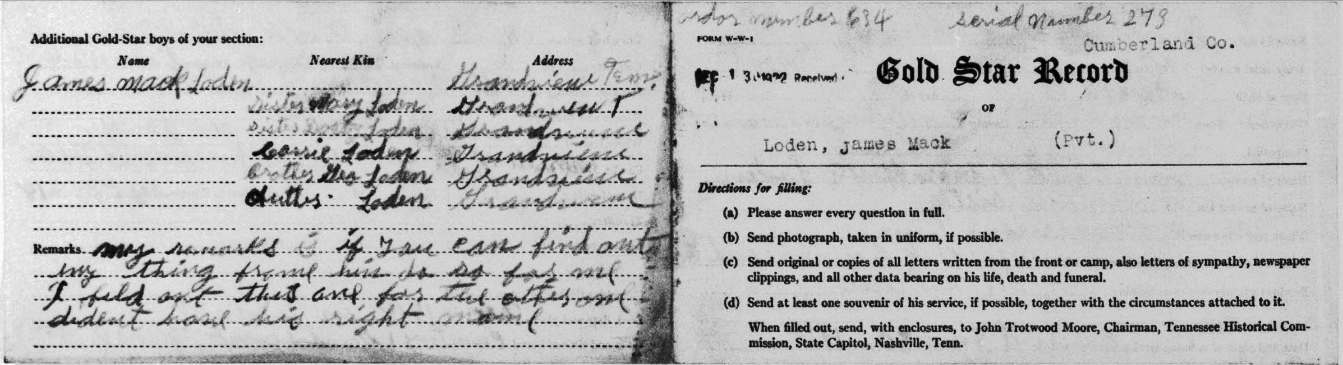 Additional Gold-Star boys of your section:
Name Nearest Kin Address
James Mack Loden Grandview Tenn.
Sister Mary Loden Grandview T
Sister Loden Grandview
Carrie Loden Grandview
Brother Geo Loden Grandview
Loden Grandview
Remarks my remarks is if you can find out
eny thing frome him do so for me
I feld out this one for the other one
dident have his right name
order number 634 serial Number 279
FORM W-W-1
Cumberland Co.
Received
Gold Star Record
OF
Loden, James Mack (Pvt.)
Directions for filling:
(a) Please answer every question in full.
(b) Send photograph, taken in uniform, if possible.
(c) Send original or copies of all letters written from the front or camp, also letters of sympathy, newspaper
clippings, and all other data bearing on his life, death and funeral.
(d) Send at least one souvenir of his service, if possible, together with the circumstances attached to it.
When filled out, send, with enclosures, to John Trotwood Moore, Chairman, Tennessee Historical Com-
mission, State Capitol, Nashville, Tenn.